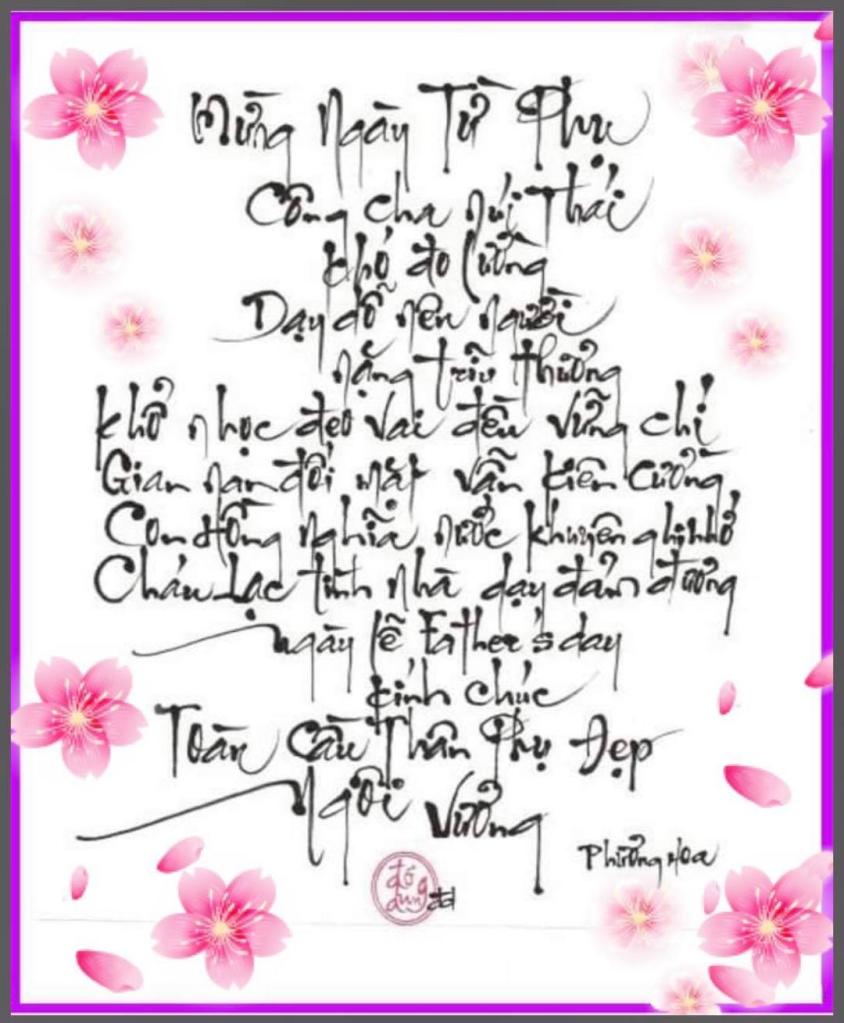 Mừng Ngày Từ Phụ
Công cha núi Thái
khó đo lường
Dạy dỗ nên người
nặng trĩu thương
khổ nhọc đeo vai đều vững chí
Gian nan đối mặt vẫn kiên cường
Con Hồng nghĩa nước khuyên ghi nhớ
Cháu Lạc tình nhà dạy đảm đương
Ngày lễ Father's day
kính chúc
Toàn Cầu Thân Phụ Đẹp
Ngôi Vương
Phương Hoa
đỗ
dung